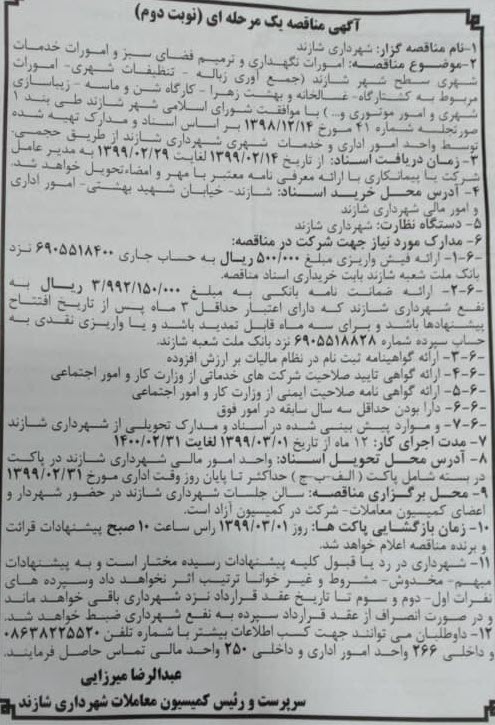 آگهی مناقصه یک مرحله ای (نوبت دوم)
۱-نام مناقصه گزار: شهرداری شازند
۲-موضوع مناقصه: امورات نگهداری و ترمیم فضای سبز و امورات خدمات
شهری سطح شهر شازند (جمع آوری زباله - تنظیفات شهری- امورات
مربوط به کشتارگاه- غسالخانه و بهشت زهرا - کارگاه شن و ماسه - زیباسازی
شهری و امور موتوری و...) با موافقت شورای اسلامی شهر شازند طی بند ۱
صورتجلسه شماره ۴۱ مورخ ۱۳۹۸/۱۲/۱۴ بر اساس اسناد و مدارک تهیه شده
توسط واحد امور اداری و خدمات شهری شهرداری شازند از طریق حجمی.
۳- زمان دریافت اسناد: از تاریخ ۱۳۹۹/۰۲/۱۴ لغایت ۱۳۹۹/۰۲/۲۹ به مدیر عامل
شرکت یا پیمانکاری با ارائه معرفی نامه معتبر با مهر و امضاء،تحویل خواهد شد.
۴- آدرس محل خرید اسناد: شازند- خیابان شهید بهشتی- امور اداری
و امور مالی شهرداری شازند
۵- دستگاه نظارت: شهرداری شازند
۶- مدارک مورد نیاز جهت شرکت در مناقصه:
۶-۱- ارائه فیش واریزی مبلغ ۵۰۰/۰۰۰ ریال به حساب جاری ۶۹۰۵۵۱۸۴۰۰ نزد
بانک ملت شعبه شازند بابت خریداری اسناد مناقصه.
۶-۲- ارائه ضمانت نامه بانکی به مبلغ ۳/۹۹۲/۱۵۰/۰۰۰ ریال به
نفع شهرداری شازند که دارای اعتبار حداقل ۳ ماه پس از تاریخ افتتاح
پیشنهادها باشد و برای سه ماه قابل تمدید باشد و یا واریزی نقدی به
حساب سپرده شماره ۶۹۰۵۵۱۸۸۲۸ نزد بانک ملت شعبه شازند.
۶-۳- ارائه گواهینامه ثبت نام در نظام مالیات بر ارزش افزوده
۶-۴- ارائه گواهی تایید صلاحیت شرکت های خدماتی از وزارت کار و امور اجتماعی
۶-۵- ارائه گواهی نامه صلاحیت ایمنی از وزارت کار و امور اجتماعی
۶-۶- دارا بودن حداقل سه سال سابقه در امور فوق
۶-۷- و موارد پیش بینی شده در اسناد و مدارک تحویلی از شهرداری شازند
۷- مدت اجرای کار: ۱۲ ماه از تاریخ ۱۳۹۹/۰۳/۰۱ لغایت ۱۴۰۰/۰۲/۳۱
۸- آدرس محل تحویل اسناد: واحد امور مالی شهرداری شازند در پاکت
در بسته شامل پاکت (الف-ب-ج) حداکثر تا پایان روز وقت اداری مورخ ۱۳۹۹/۰۲/۳۱
۹- محل برگزاری مناقصه: سالن جلسات شهرداری شازند در حضور شهردار و
اعضای کمیسیون معاملات- شرکت در کمیسیون آزاد است.
۱۰- زمان بازگشایی پاکت ها: روز ۱۳۹۹/۰۳/۰۱ راس ساعت ۱۰ صبح پیشنهادات قرائت
و برنده مناقصه اعلام خواهد شد.
۱۱- شهرداری در رد یا قبول کلیه پیشنهادات رسیده مختار است و به پیشنهادات
مبهم- مخدوش- مشروط و غیر خوانا ترتیب اثر نخواهد داد وسپرده های
نفرات اول- دوم و سوم تا تاریخ عقد قرارداد نزد شهرداری باقی خواهد ماند
و در صورت انصراف از عقد قرارداد سپرده به نفع شهرداری ضبط خواهد شد.
۱۲- داوطلبان می توانند جهت کسب اطلاعات بیشتر با شماره تلفن ۰۸۶۳۸۲۲۵۵۲۰
و داخلی ۲۶۶ واحد امور اداری و داخلی ۲۵۰ واحد مالی تماس حاصل فرمایند.
عبدالرضا میرزایی
سرپرست و رئیس کمیسیون معاملات شهرداری شازند